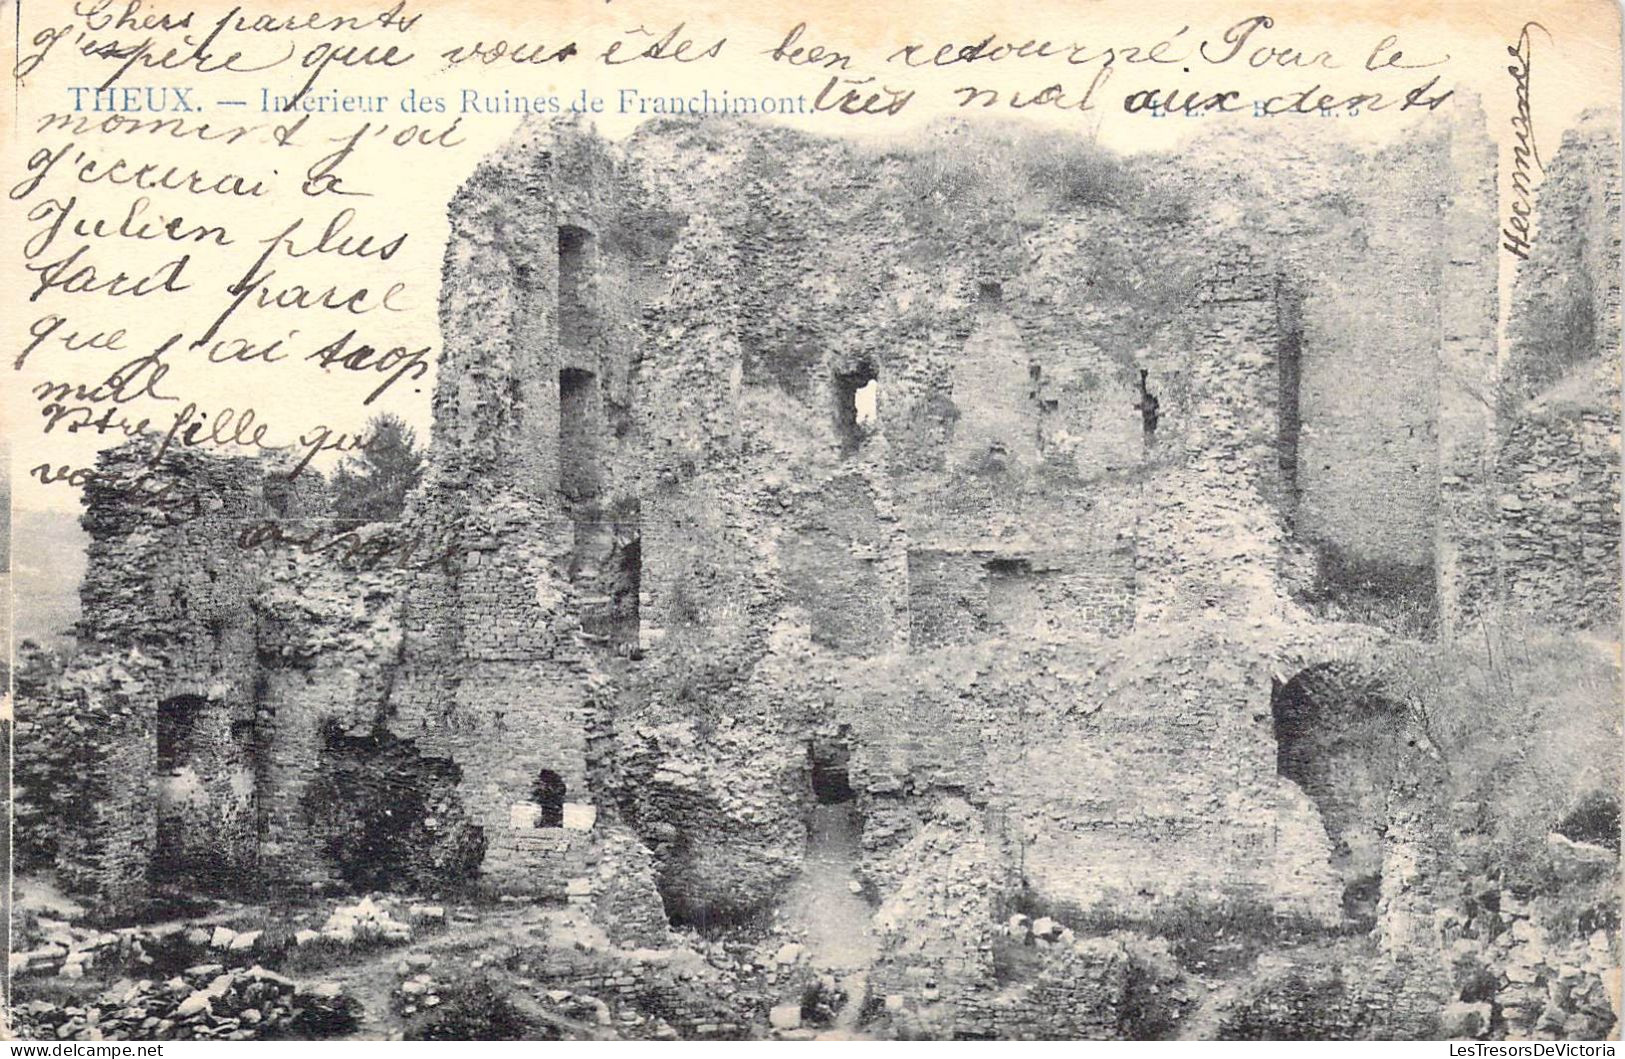 Chers parents
J'espère que vous êtes bien retourné. Pour le
THEUX. — Intérieur des Ruines de Franchimont.
moment j'ai très mal aux dents
J'ecrirai a
Julien plus
tard parce
que j'ai trop
mal
Vtre fille qui
vous aime
LesTresorsDeVictoria